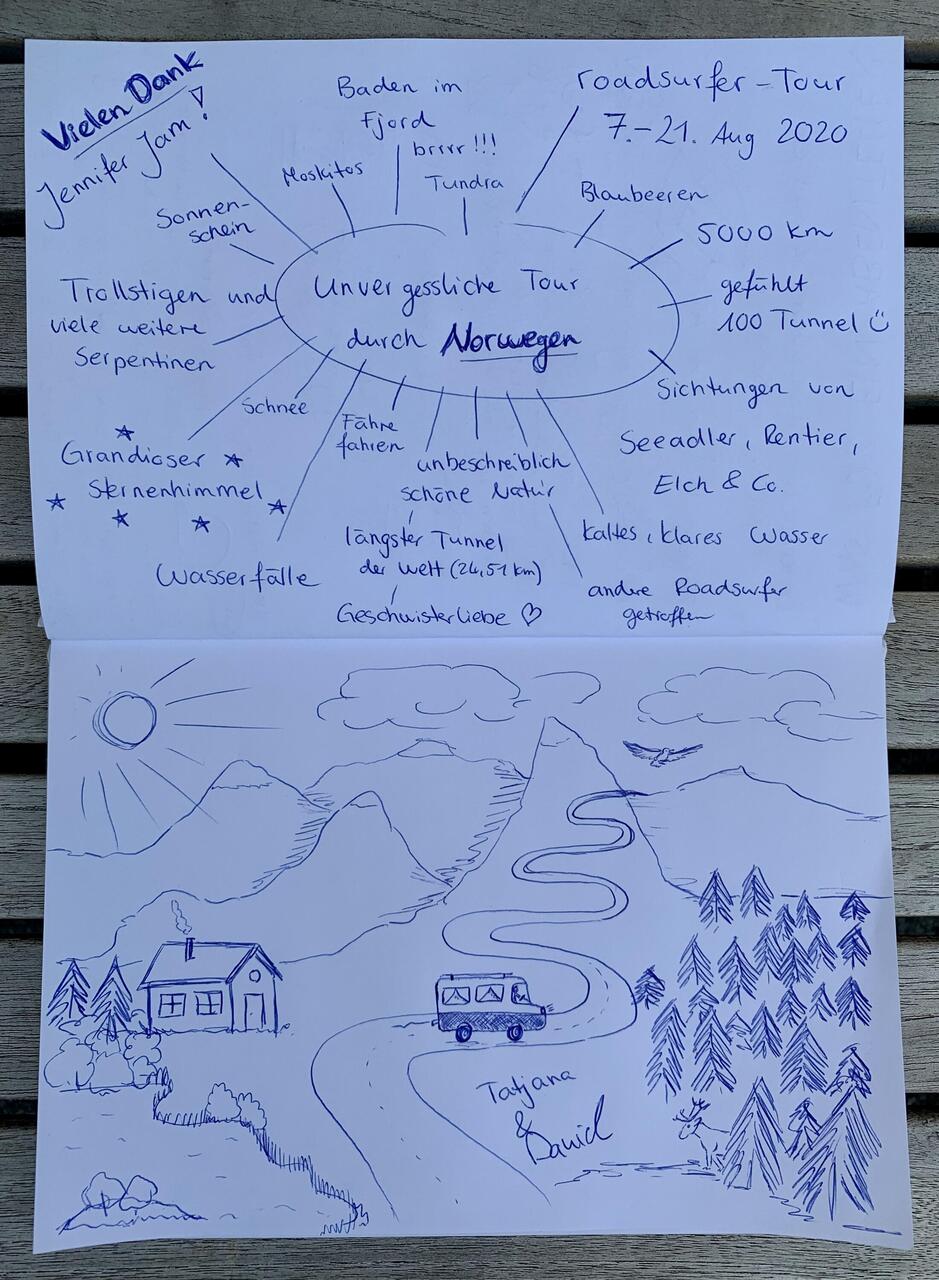 Vielen Dank
Jennifer Jam!
Baden im
Fjord
brrrr !!!
roadsurfer-Tour
7.-21. Aug 2020
Moskitos
Tundra
Blaubeeren
Sonnen-
schein
5000 km
Trollstigen und
viele weitere
Serpentinen
Unvergessliche Tour
durch Norwegen
gefühlt
100 Tunnel
Schnee
Fähre
fahren
Sichtungen von
Seeadler, Rentier,
Elch & Co.
Grandioser
Sternenhimmel
unbeschreiblich
schöne Natur
längster Tunnel
der Welt (24,51 km)
kaltes, klares Wasser
Wasserfälle
Geschwisterliebe ♡
andere Roadsurfer
getroffen
Tatjana
&
Daniel